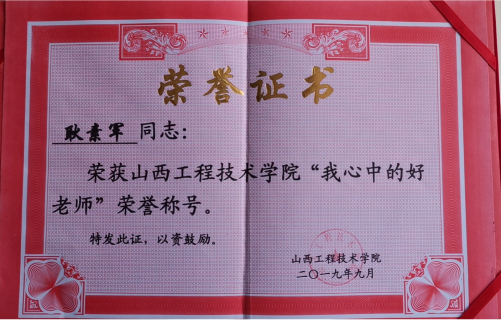 荣誉证书
耿素军 同志：
荣获山西工程技术学院“我心中的好
老师”荣誉称号。
特发此证，以资鼓励。
山西工程技术学院
二〇一九年九月